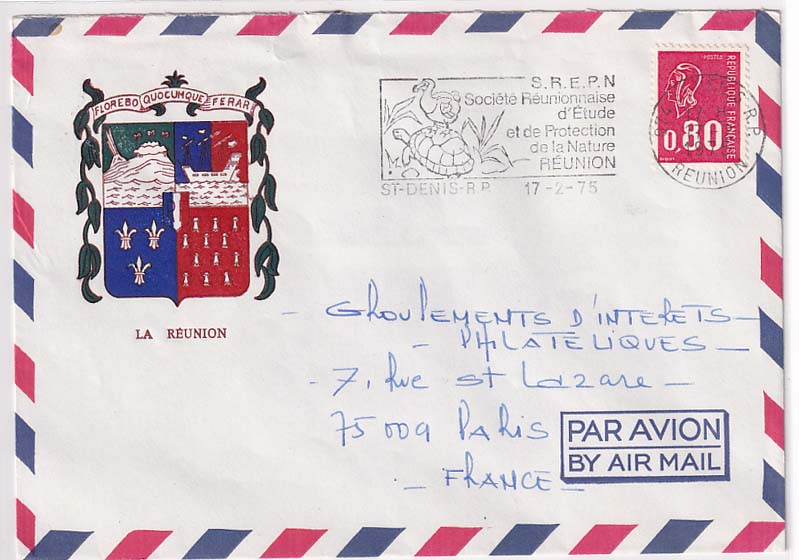 FLOREBO QUOCUMQUE FERAR
LA RÉUNION
S.R.E.P.N
Société Réunionnaise
d'Étude
et de Protection
de la Nature
RÉUNION
ST-DENIS-R.P. 17-2-75
POSTES
RÉPUBLIQUE FRANÇAISE
0,80
R.P.
RÉUNION
- GROUPEMENTS D'INTERETS -
- PHILATELIQUES -
- 7, Rue St Lazare -
75009 PARIS
- FRANCE -
PAR AVION
BY AIR MAIL